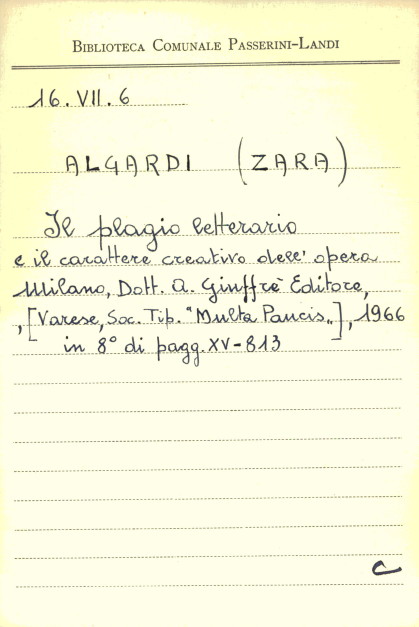 BIBLIOTECA COMUNALE PASSERINI-LANDI
16.VII.6
ALGARDI (ZARA)
Il plagio letterario
e il carattere creativo dell'opera
Milano, Dott. A. Giuffrè Editore,
,[Varese, Soc. Tip. "Multa Paucis„], 1966
in 8° di pagg. XV-813
C